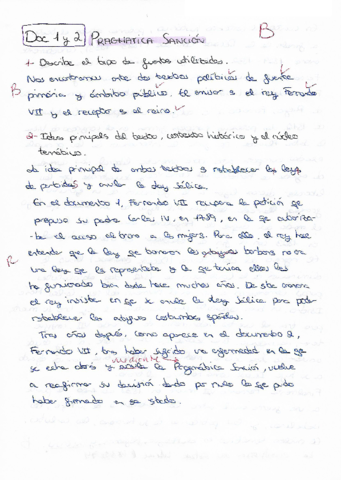 B
Doc 1 y 2 PRAGMÁTICA SANCIÓN
1- Describe el tipo de fuentes utilizadas.
Nos encontramos ante dos textos políticos de fuente
B primaria y ámbito público. El emisor es el rey Fernando
VII y el receptor es el reino.
2- Ideas principales del texto, contexto histórico y el núcleo
temático.
La idea principal de ambos textos es restablecer las leyes
de partidas y anular la Ley Sálica.
En el documento 1, Fernando VII recupera la petición que
propuso su padre Carlos IV, en 1789, en la que autoriza-
ba el acceso al trono a las mujeres. Para ello, el rey hace
entender que la ley que los borbones no era
una ley que les representaba y la que tenían ellos les
ha funcionado bien desde hace muchos años. De esta manera
el rey insiste en que se anule la Ley Sálica para poder
restablecer las antiguas costumbres españolas.
Tres años después, como aparece en el documento 2,
Fernando VII, tras haber sufrido una enfermedad en la que
mediante
se la Pragmática Sanción, vuelve
a reafirmar su decisión dado por nulo lo que pudo
haber firmado en ese estado.